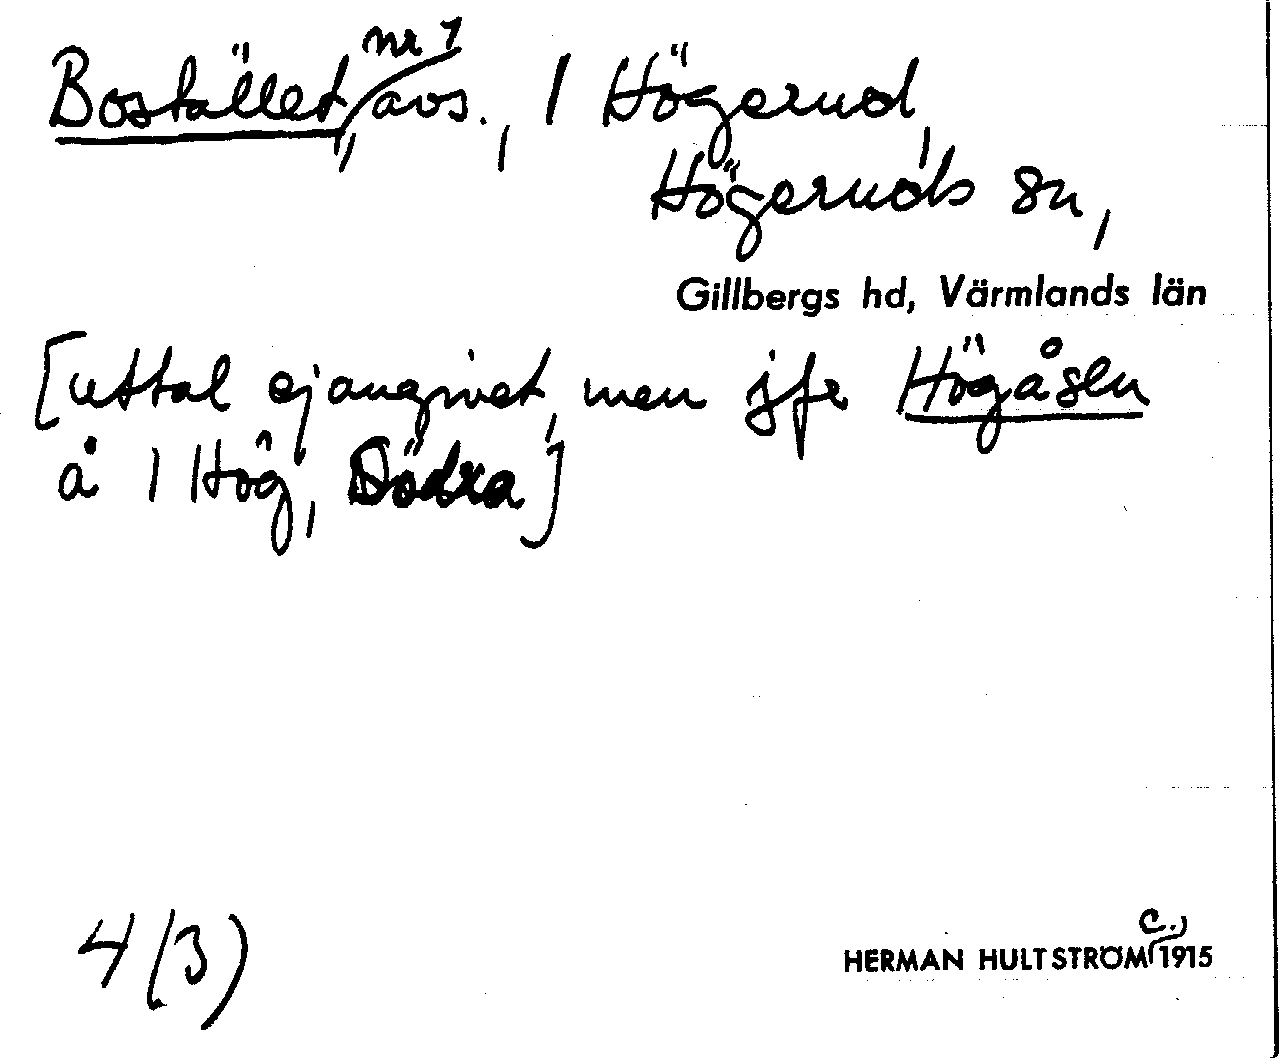 Bostället, nr 1 avs., 1 Högerud,
Högeruds sn,
Gillbergs hd, Värmlands län
[uttal ej angivet, men jfr Högåsen
å 1 Hög, Södra]
4 (3)
HERMAN HULTSTRÖM (c.) 1915